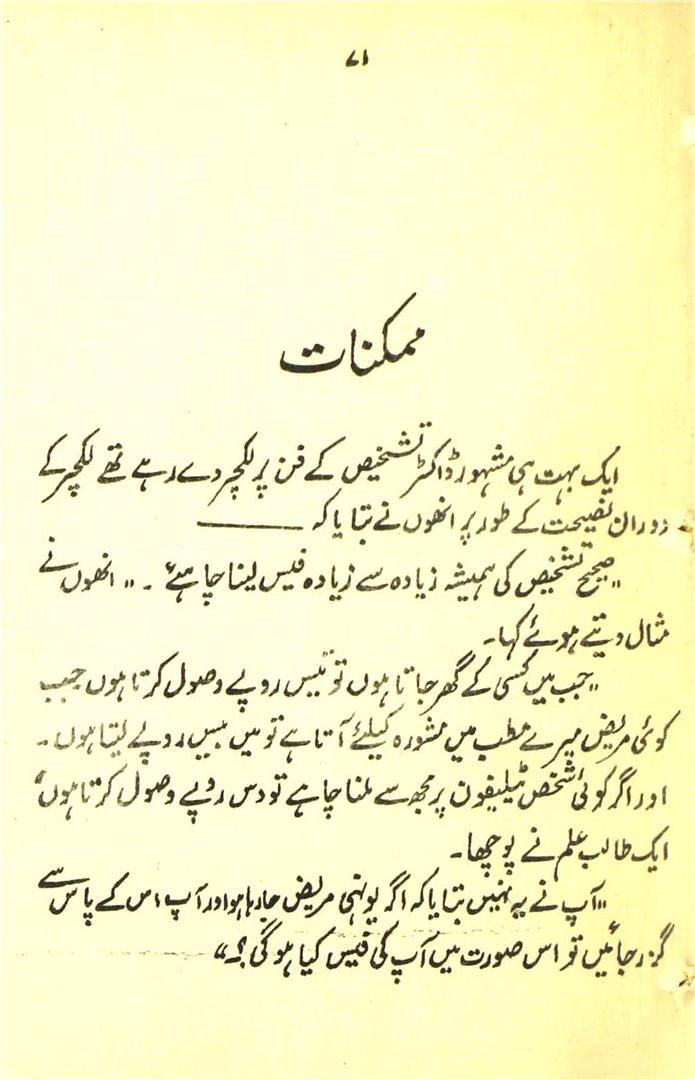 ۷۱
ممکنات
ایک بہت ہی مشہور ڈاکٹر تشخیص کے فن پر لکچر دے رہے تھے لکچر کے
دوران نصیحت کے طور پر انھوں نے بتایا کہ ———
„صحیح تشخیص کی ہمیشہ زیادہ سے زیادہ فیس لینا چاہئے۔ „ انھوں نے
مثال دیتے ہوئے کہا۔
„جب میں کسی کے گھر جاتا ہوں تو تیس روپے وصول کرتا ہوں جب
کوئی مریض میرے مطب میں مشورہ کیلئے آتا ہے تو میں بیس روپے لیتا ہوں۔
اور اگر کوئی شخص ٹیلیفون پر مجھ سے ملنا چاہے تو دس روپے وصول کرتا ہوں“
ایک طالب علم نے پوچھا۔
„آپ نے یہ نہیں بتایا کہ اگر یونہی مریض جا رہا ہو اور آپ اس کے پاس سے
گزر جائیں تو اس صورت میں آپ کی فیس کیا ہو گی؟“